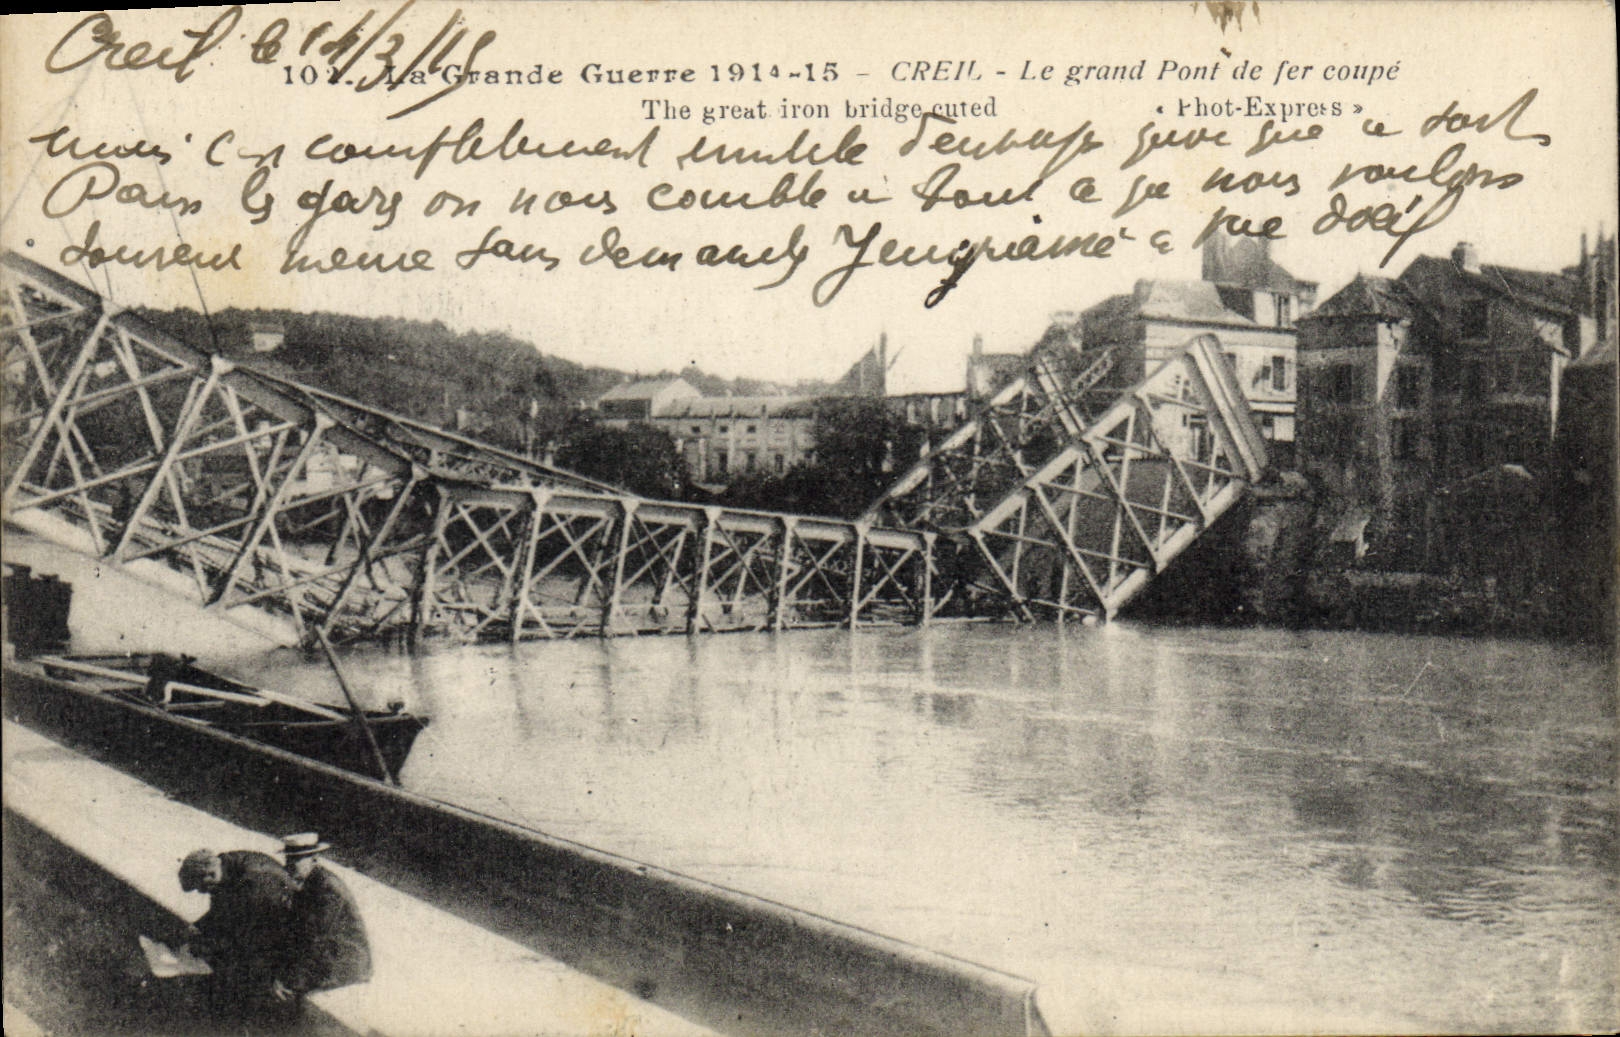 Creil le 14/3/15
102. La Grande Guerre 1914-15 - CREIL - Le grand Pont de fer coupé
The great iron bridge cuted « Phot-Express »
mais c'est complètement inutile quoi que a
Dans les gares on nous comble a tout ce que nous voulons
souvent meme sans demande